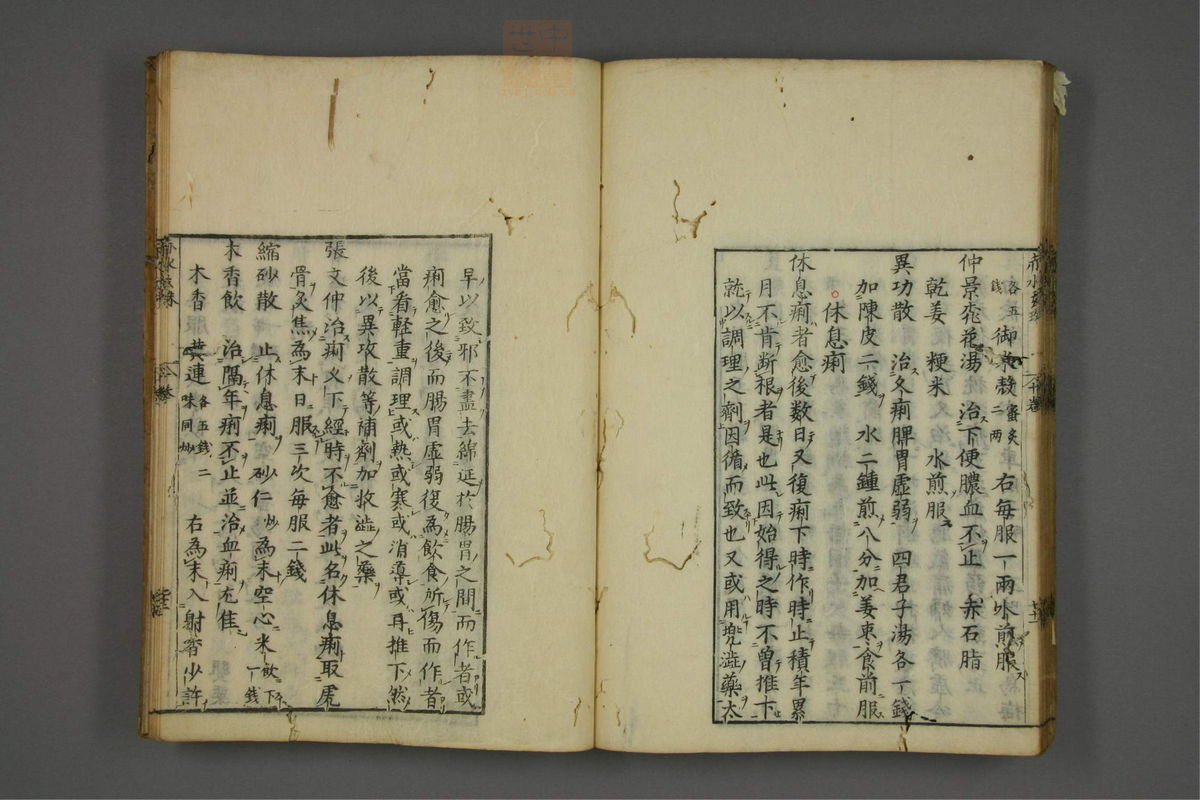 各五錢 御米殼蜜炙二兩 右每服一兩水煎服
仲景桃花湯 治下便膿血不止 赤石脂
乾姜 粳米 水煎服
異功散 治久痢脾胃虛弱 四君子湯各一錢
加陳皮二錢 水二鍾煎八分加姜枣食前服
休息痢
休息痢者愈後数日又復痢下時作時止積年累
月不肯断根者是也此因始得之時不曾推下
就以調理之劑因循而致也又或用兜澁藥太
早以致邪不盡去綿延於腸胃之間而作者或
痢愈之後而腸胃虛弱復為飲食所傷而作者
當看軽重調理或熱或寒或消導或再推下然
後以異攻散等補劑加收澁之藥
張文仲治痢义下經時不愈者此名休息痢取虎
骨炙焦為末日服三次每服二錢
縮砂散 止休息痢 砂仁炒為末空心米飲下一錢
木香飲 治隔年痢不止並治血痢尤佳
木香 黄連各五錢二味同炒 右為末入射香少許